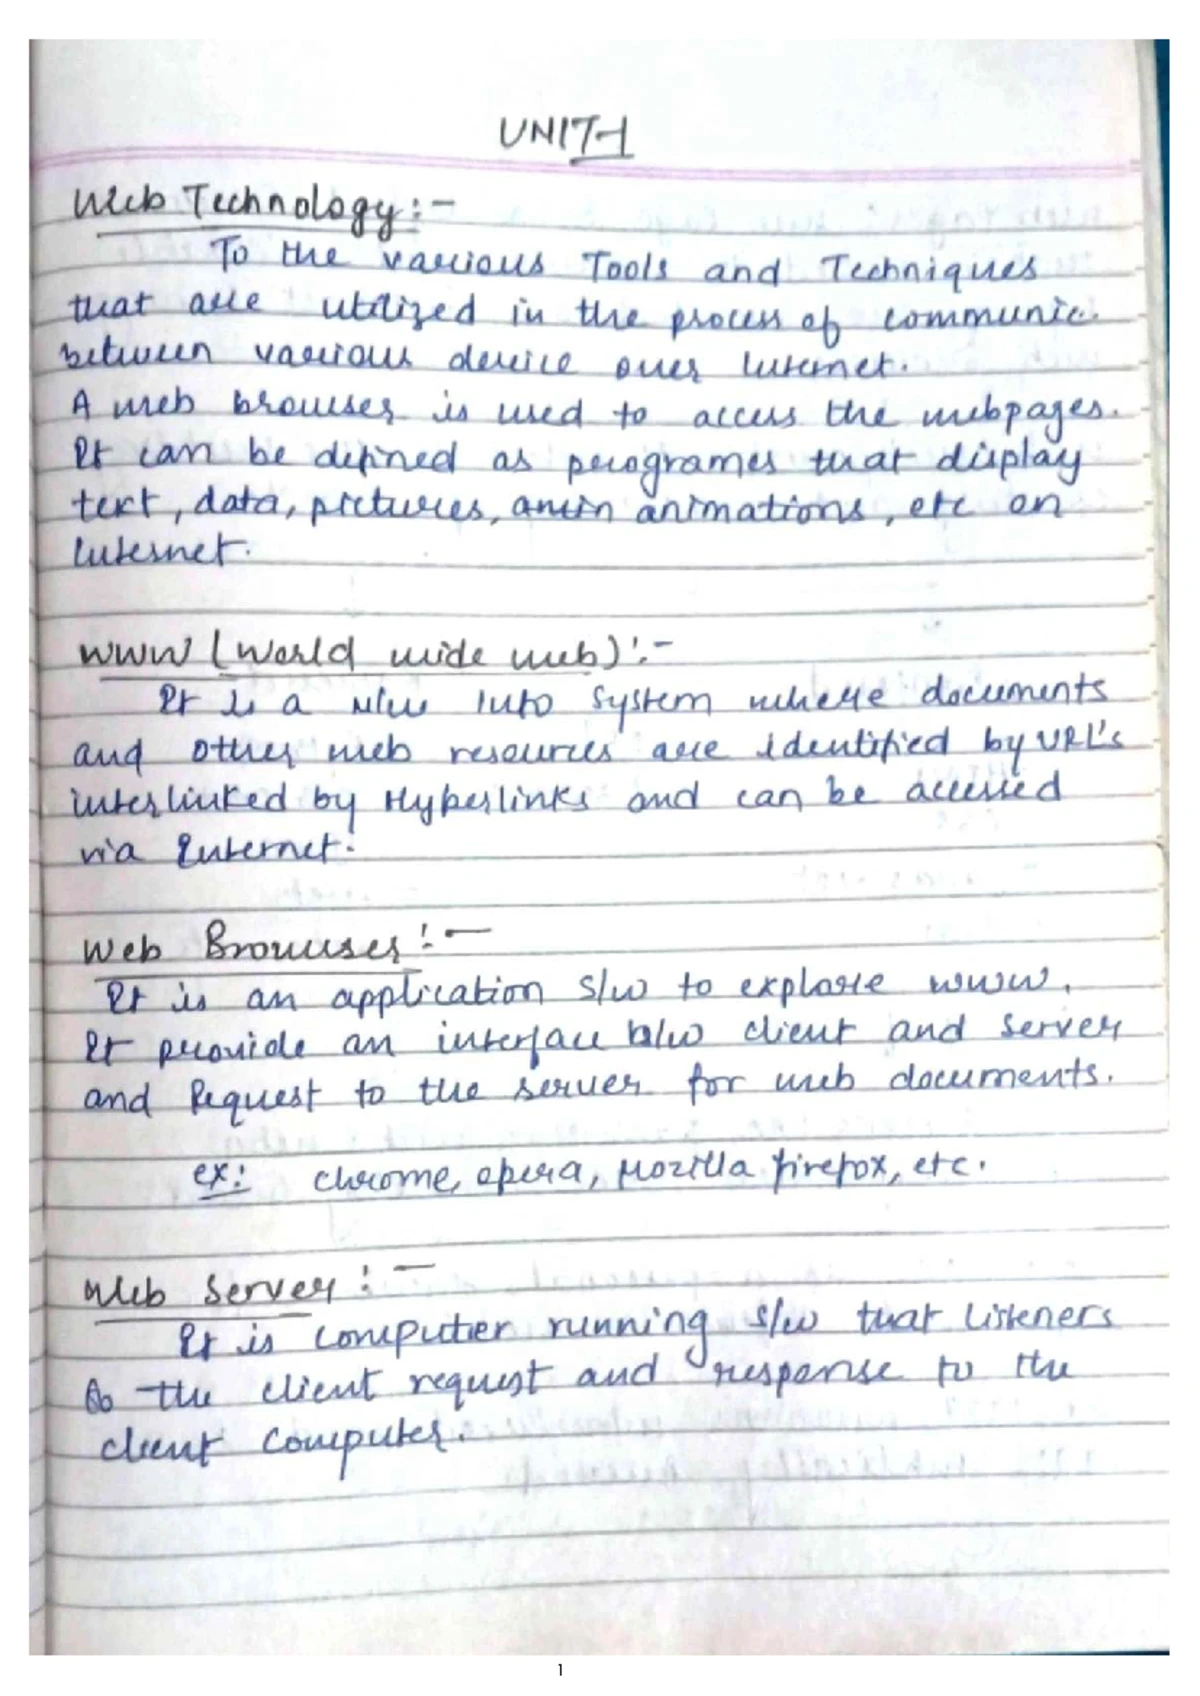 UNIT-1
Web Technology:-
To the various Tools and Techniques
that are utilized in the process of communic.
between various device over Internet.
A web browser is used to access the webpages.
It can be defined as programes that display
text, data, pictures, animations, etc on
Internet.
WWW (World wide web):-
It is a new into System where documents
and other web resources are identified by URL's
interlinked by Hyperlinks and can be accessed
via Internet.
Web Browser:-
It is an application s/w to explore www.
It provide an interface b/w client and server
and Request to the server for web documents.
ex: chrome, opera, Mozilla firefox, etc.
Web Server:-
It is computer running s/w that listeners
to the client request and response to the
client computer.
1